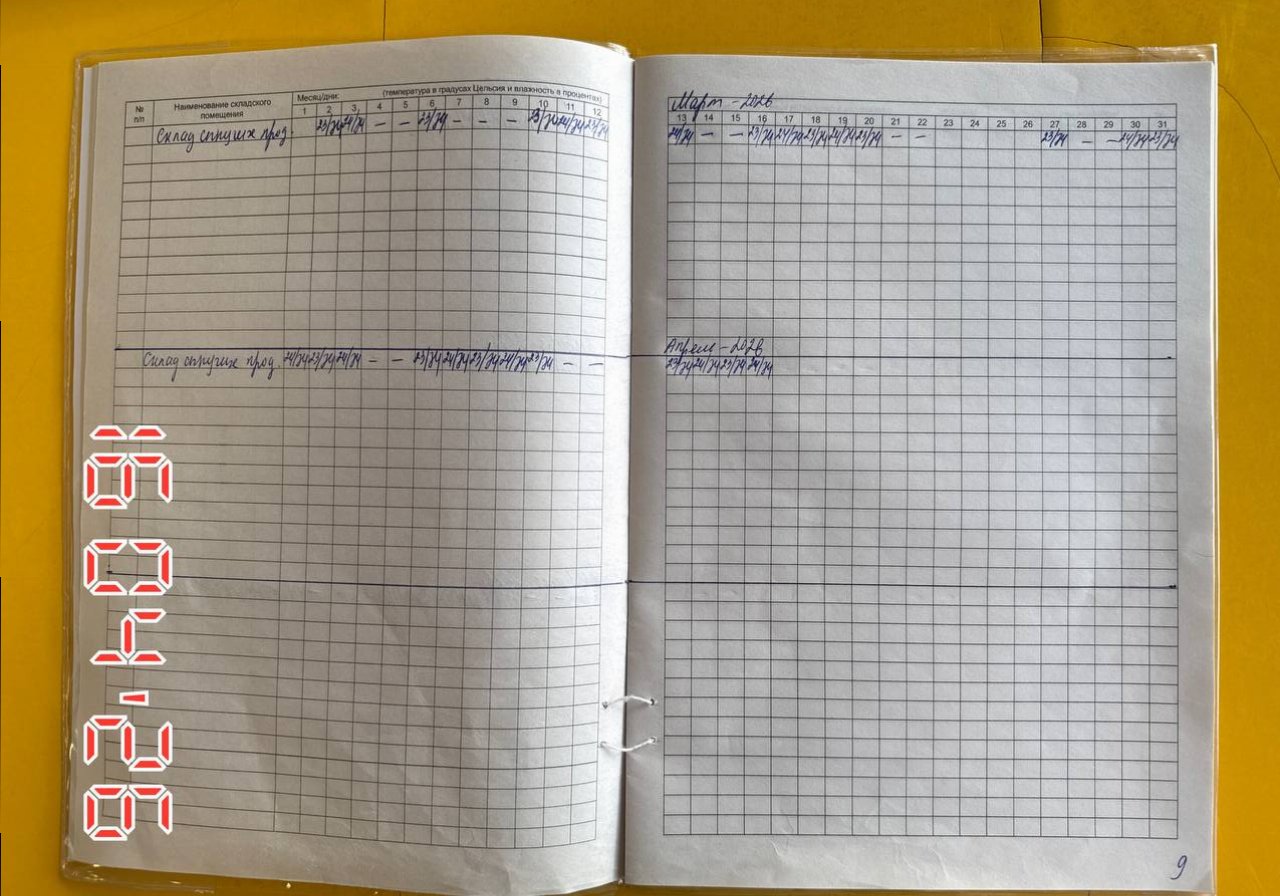 № п/п
Наименование складского помещения
Месяц/дни: (температура в градусах Цельсия и влажность в процентах)
1 2 3 4 5 6 7 8 9 10 11 12
Склад сыпучих прод. 23/74 24/74 – – 23/74 – – – 23/74 24/74 23/74
Март - 2026
13 14 15 16 17 18 19 20 21 22 23 24 25 26 27 28 29 30 31
24/74 – – 23/74 24/74 23/74 24/74 23/74 – – 23/74 – – 24/74 23/74
Склад сыпучих прод. 24/74 23/74 24/74 – – 23/74 24/74 23/74 24/74 23/74 – –
Апрель - 2026
23/74 24/74 23/74 24/74
9
16 04 '26